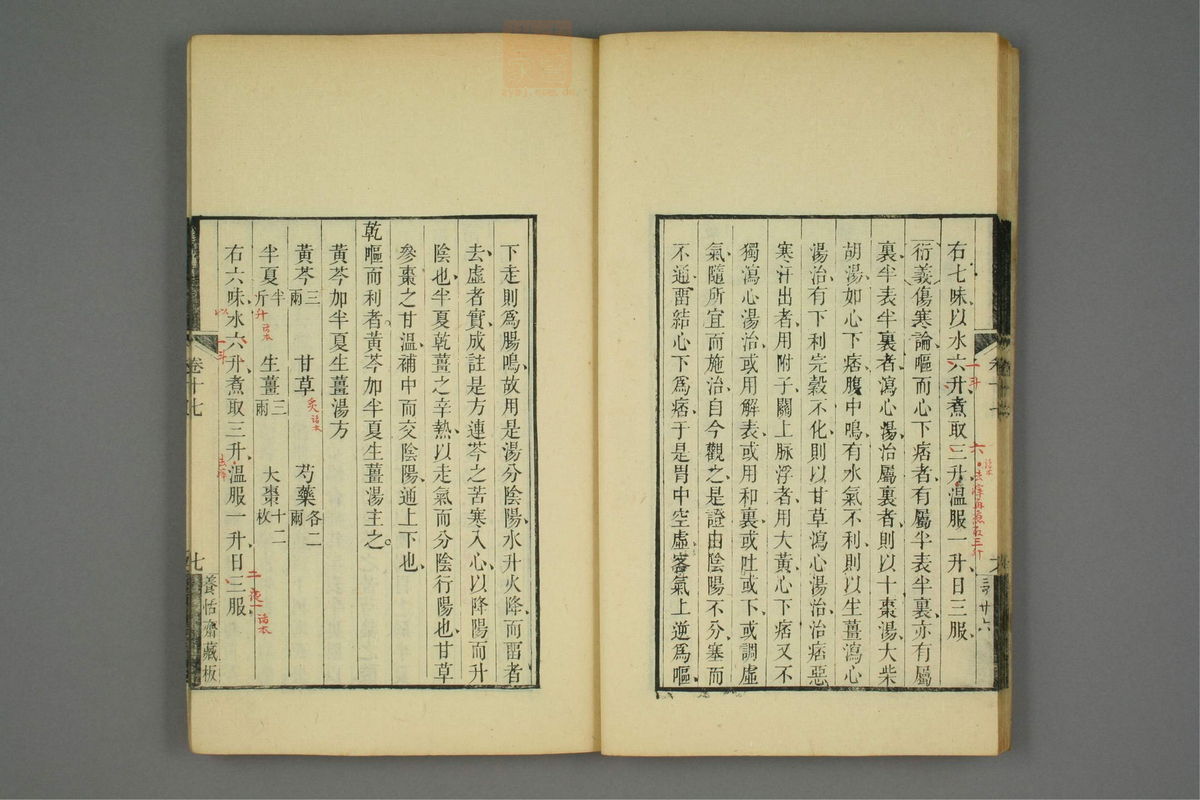 右七味以水六升煮取三升溫服一升日三服
衍義傷寒論嘔而心下痞者有屬半表半裏亦有屬
裏半表半裏者瀉心湯治屬裏者則以十棗湯大柴
胡湯如心下痞腹中鳴有水氣不利則以生薑瀉心
湯治有下利完穀不化則以甘草瀉心湯治治痞惡
寒汗出者用附子關上脉浮者用大黃心下痞又不
獨瀉心湯治或用解表或用和裏或吐或下或調虛
氣隨所宜而施治自今觀之是證由陰陽不分塞而
不通畱結心下為痞于是胃中空虛客氣上逆為嘔
下走則為腸鳴故用是湯分陰陽水升火降而畱者
去虛者實成註是方連芩之苦寒入心以降陽而升
陰也半夏乾薑之辛熱以走氣而分陰行陽也甘草
參棗之甘溫補中而交陰陽通上下也
乾嘔而利者黃芩加半夏生薑湯主之。
黃芩加半夏生薑湯方
黃芩三兩 甘草 芍藥各二兩
半夏半斤 生薑三兩 大棗十二枚
右六味水六升煮取三升溫服一升日三服
卷十七
七
養恬齋藏板
一斗
六
去滓再煎取三升
炙
升
一斗
去滓